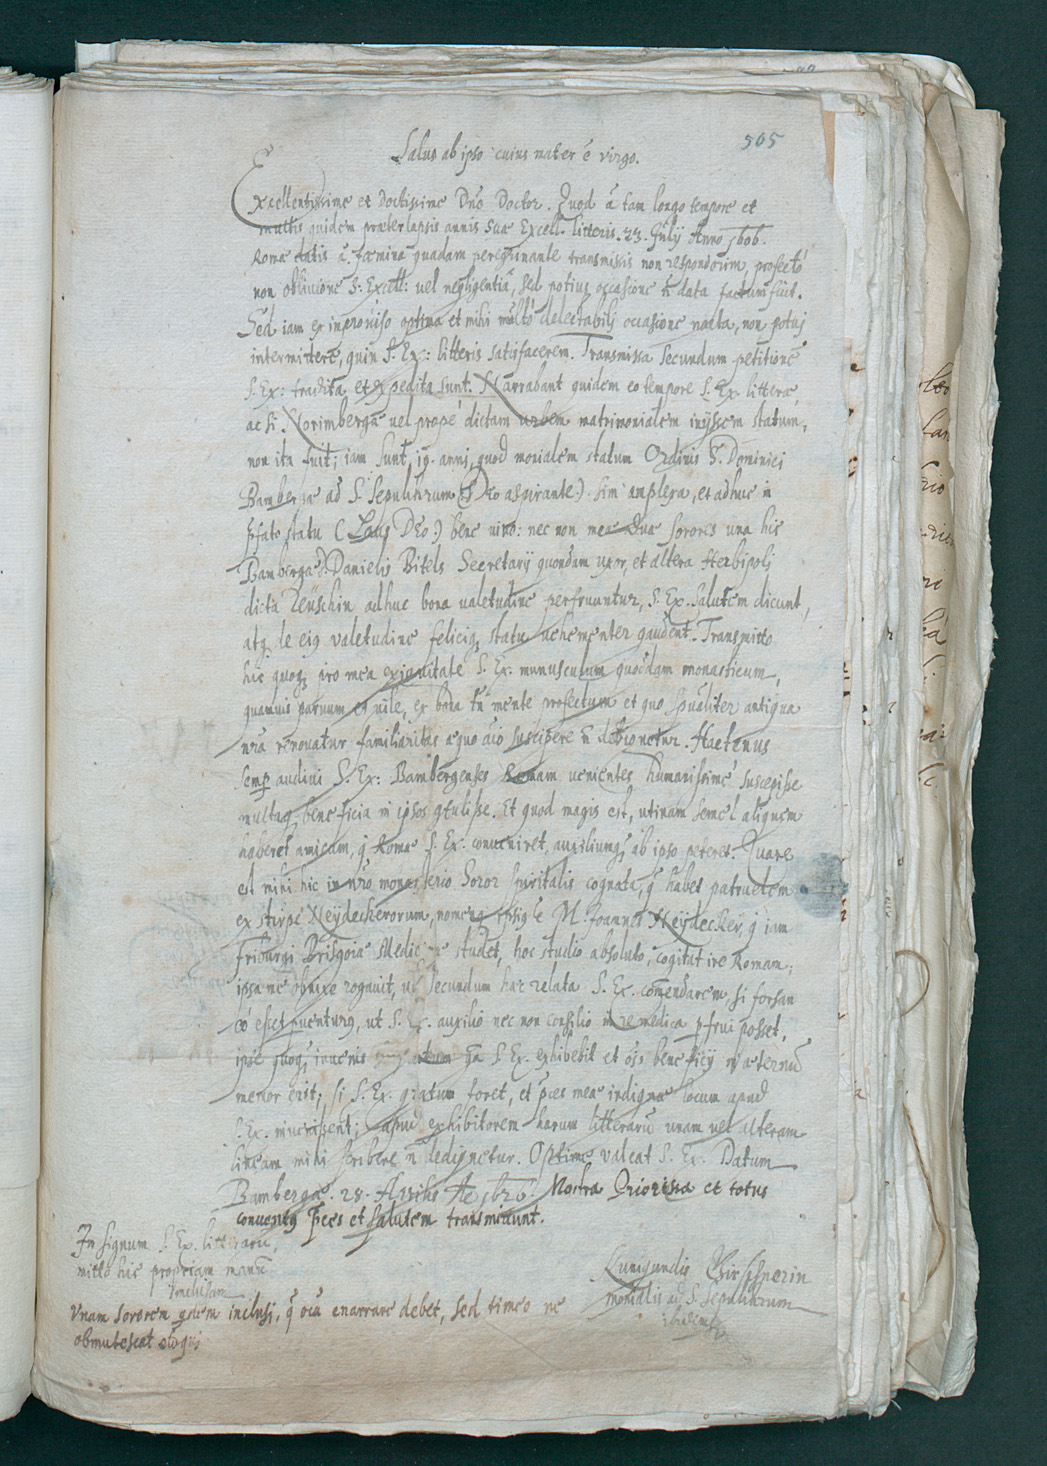 505
Salus ab ipso cuius mater ē virgo.
Excellentissime et Doctissime Dnē Doctor. Quod â tam longo tempore et
multis quidem præterlapsis annis Suæ Excell. litteris. 23. Julÿ Anno 1606.
Romæ datis â fœmina quadam peregrinante transmissis non responderim, profectò
non oblivione S: Excell: uel negligentiâ, sed potius occasione ñ data factum fuit.
Sed iam ex improviso optima et mihi multò delectabilj occasione nacta, non potuj
intermittere, quin S. Ex: litteris satisfacerem. Transmissa secundum petitionē
S. Ex: tradita et expedita sunt. Narrabant quidem eo tempore S. Ex. litteræ,
ac si Norimbergæ uel propè dictam urbem matrimonialem inÿssem statum,
non ita fuit; iam sunt 19. anni, quod monialem statum Ordinis S. Dominici
Bambergæ ad S. Sepulchrum (Deo aspirante:) sim amplexa, et adhuc in
p̄fato statu (Laus Deo:) bene uiuo: nec non meæ duæ sorores una hic
Bambergæ D. Danielis Bitels Secretarÿ quondam uxor, et altera Herbipolj
dicta Zeüschin adhuc bona ualetudine perfruuntur, S. Ex. Salutem dicunt,
atq; de eiq valetudine felicíq; statu uehementer gaudent. Transmitto
hic quoq; pro mea exiguitate S. Ex. munusculum quoddam monasticum,
quamuis paruum et uile, ex bona tn̄ mente profectum et quo spūaliter antiqua
nr̄a renouatur familiaritas æquo aīo suscipere ñ dedignetur. Hactenus
semp audiui S. Ex: Bambergenses Romam uenientes humanissimè suscepisse
multaq; beneficia in ipsos 9tulisse. Et quod magis est, utinam semel aliquem
haberet amicum, q̄ Romæ S. Ex. conueniret, auxiliumq; ab ipso peteret. Quare
est mihi hic in nr̄o monasterio Soror spiritalis cognata, q̄ habet patruelem
ex stirpe Neÿdecherorum, nomenq; ipsiq; M. Joannes Neÿdecker, q̄ iam
Friburgi Brisgoiæ Medicinæ studet, hoc studio absoluto, cogitat ire Romam;
ipsa me obnixe rogauit, ut secundum hæc relata S. Ex. comendarem, si forsan
eò esset puenturq, ut S. Ex. auxilio nec non consilio in re medica pfrui posset,
ipse quoq; iuuenis gratum S. Ex. exhibebit et oīs beneficÿ in æternū
memor erit; si S. Ex. gratum foret, et p̄ces meæ indignæ locum apud
S. Ex. inuenissent; apud exhibitorem harum litterarū unam uel alteram
lineam mihi scribere ñ dedignetur. Optime valeat S. Ex. Datum
Bambergæ. 28. Aprilis Ao 1626. Nostra Priorissa et totus
conuentq p̄ces et salutem transmittunt.
In signum S. Ex. litterarū,
mitto hic propriam manū
inclusam
Kunigundis Girschnerin
monialis ad S. Sepulchrum
ibidem
Vnam sororem qdem inclusi, q̄ oīa enarrare debet, sed timeo ne
obmutescat